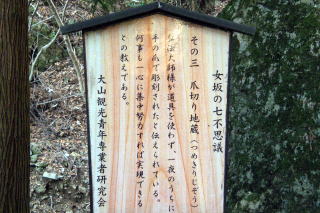 女坂の七不思議
その三 爪切り地蔵(つめきりじぞう)
弘法大師様が道具を使わず、一夜のうちに
手の爪で彫刻されたと伝えられている。
何事も一心に集中努力すれば実現できる
との教えである。
大山観光青年専業者研究会